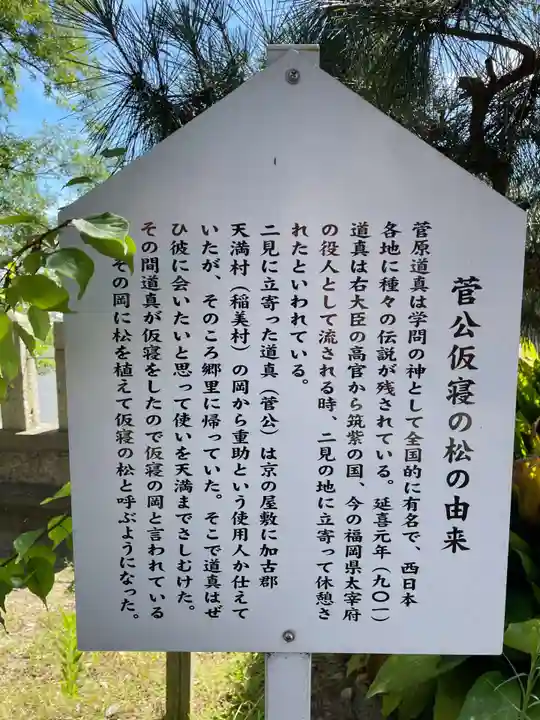 菅公仮寝の松の由来
菅原道真は学問の神として全国的に有名で、西日本
各地に種々の伝説が残されている。延喜元年（九〇一）
道真は右大臣の高官から筑紫の国、今の福岡県太宰府
の役人として流される時、二見の地に立寄って休憩さ
れたといわれている。
二見に立寄った道真（菅公）は京の屋敷に加古郡
天満村（稲美村）の岡から重助という使用人か仕えて
いたが、そのころ郷里に帰っていた。そこで道真はぜ
ひ彼に会いたいと思って使いを天満までさしむけた。
その間道真が仮寝をしたので仮寝の岡と言われている
その岡に松を植えて仮寝の松と呼ぶようになった。